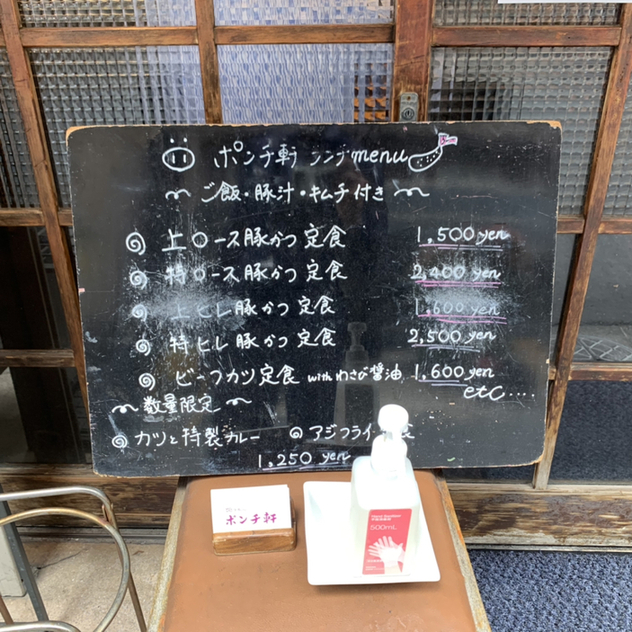 ポンチ軒 ランチmenu
ご飯・豚汁・キムチ付き
上ロース豚かつ定食 1,500 yen
特ロース豚かつ定食 2,400 yen
上ヒレ豚かつ定食 1,600 yen
特ヒレ豚かつ定食 2,500 yen
ビーフカツ定食 withわさび醤油 1,600 yen
etc....
数量限定
カツと特製カレー アジフライ
1,250 yen
ポンチ軒
500mL